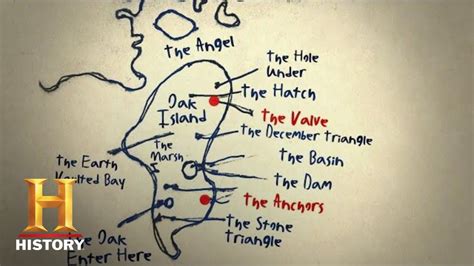 The Angel
The Hole
Under
The Hatch
Oak
Island
The Valve
The December Triangle
The
Marsh
The Basin
The Earth
Vaulted Bay
The Dam
The Anchors
The Stone
Triangle
The Oak
Enter Here
H
HISTORY